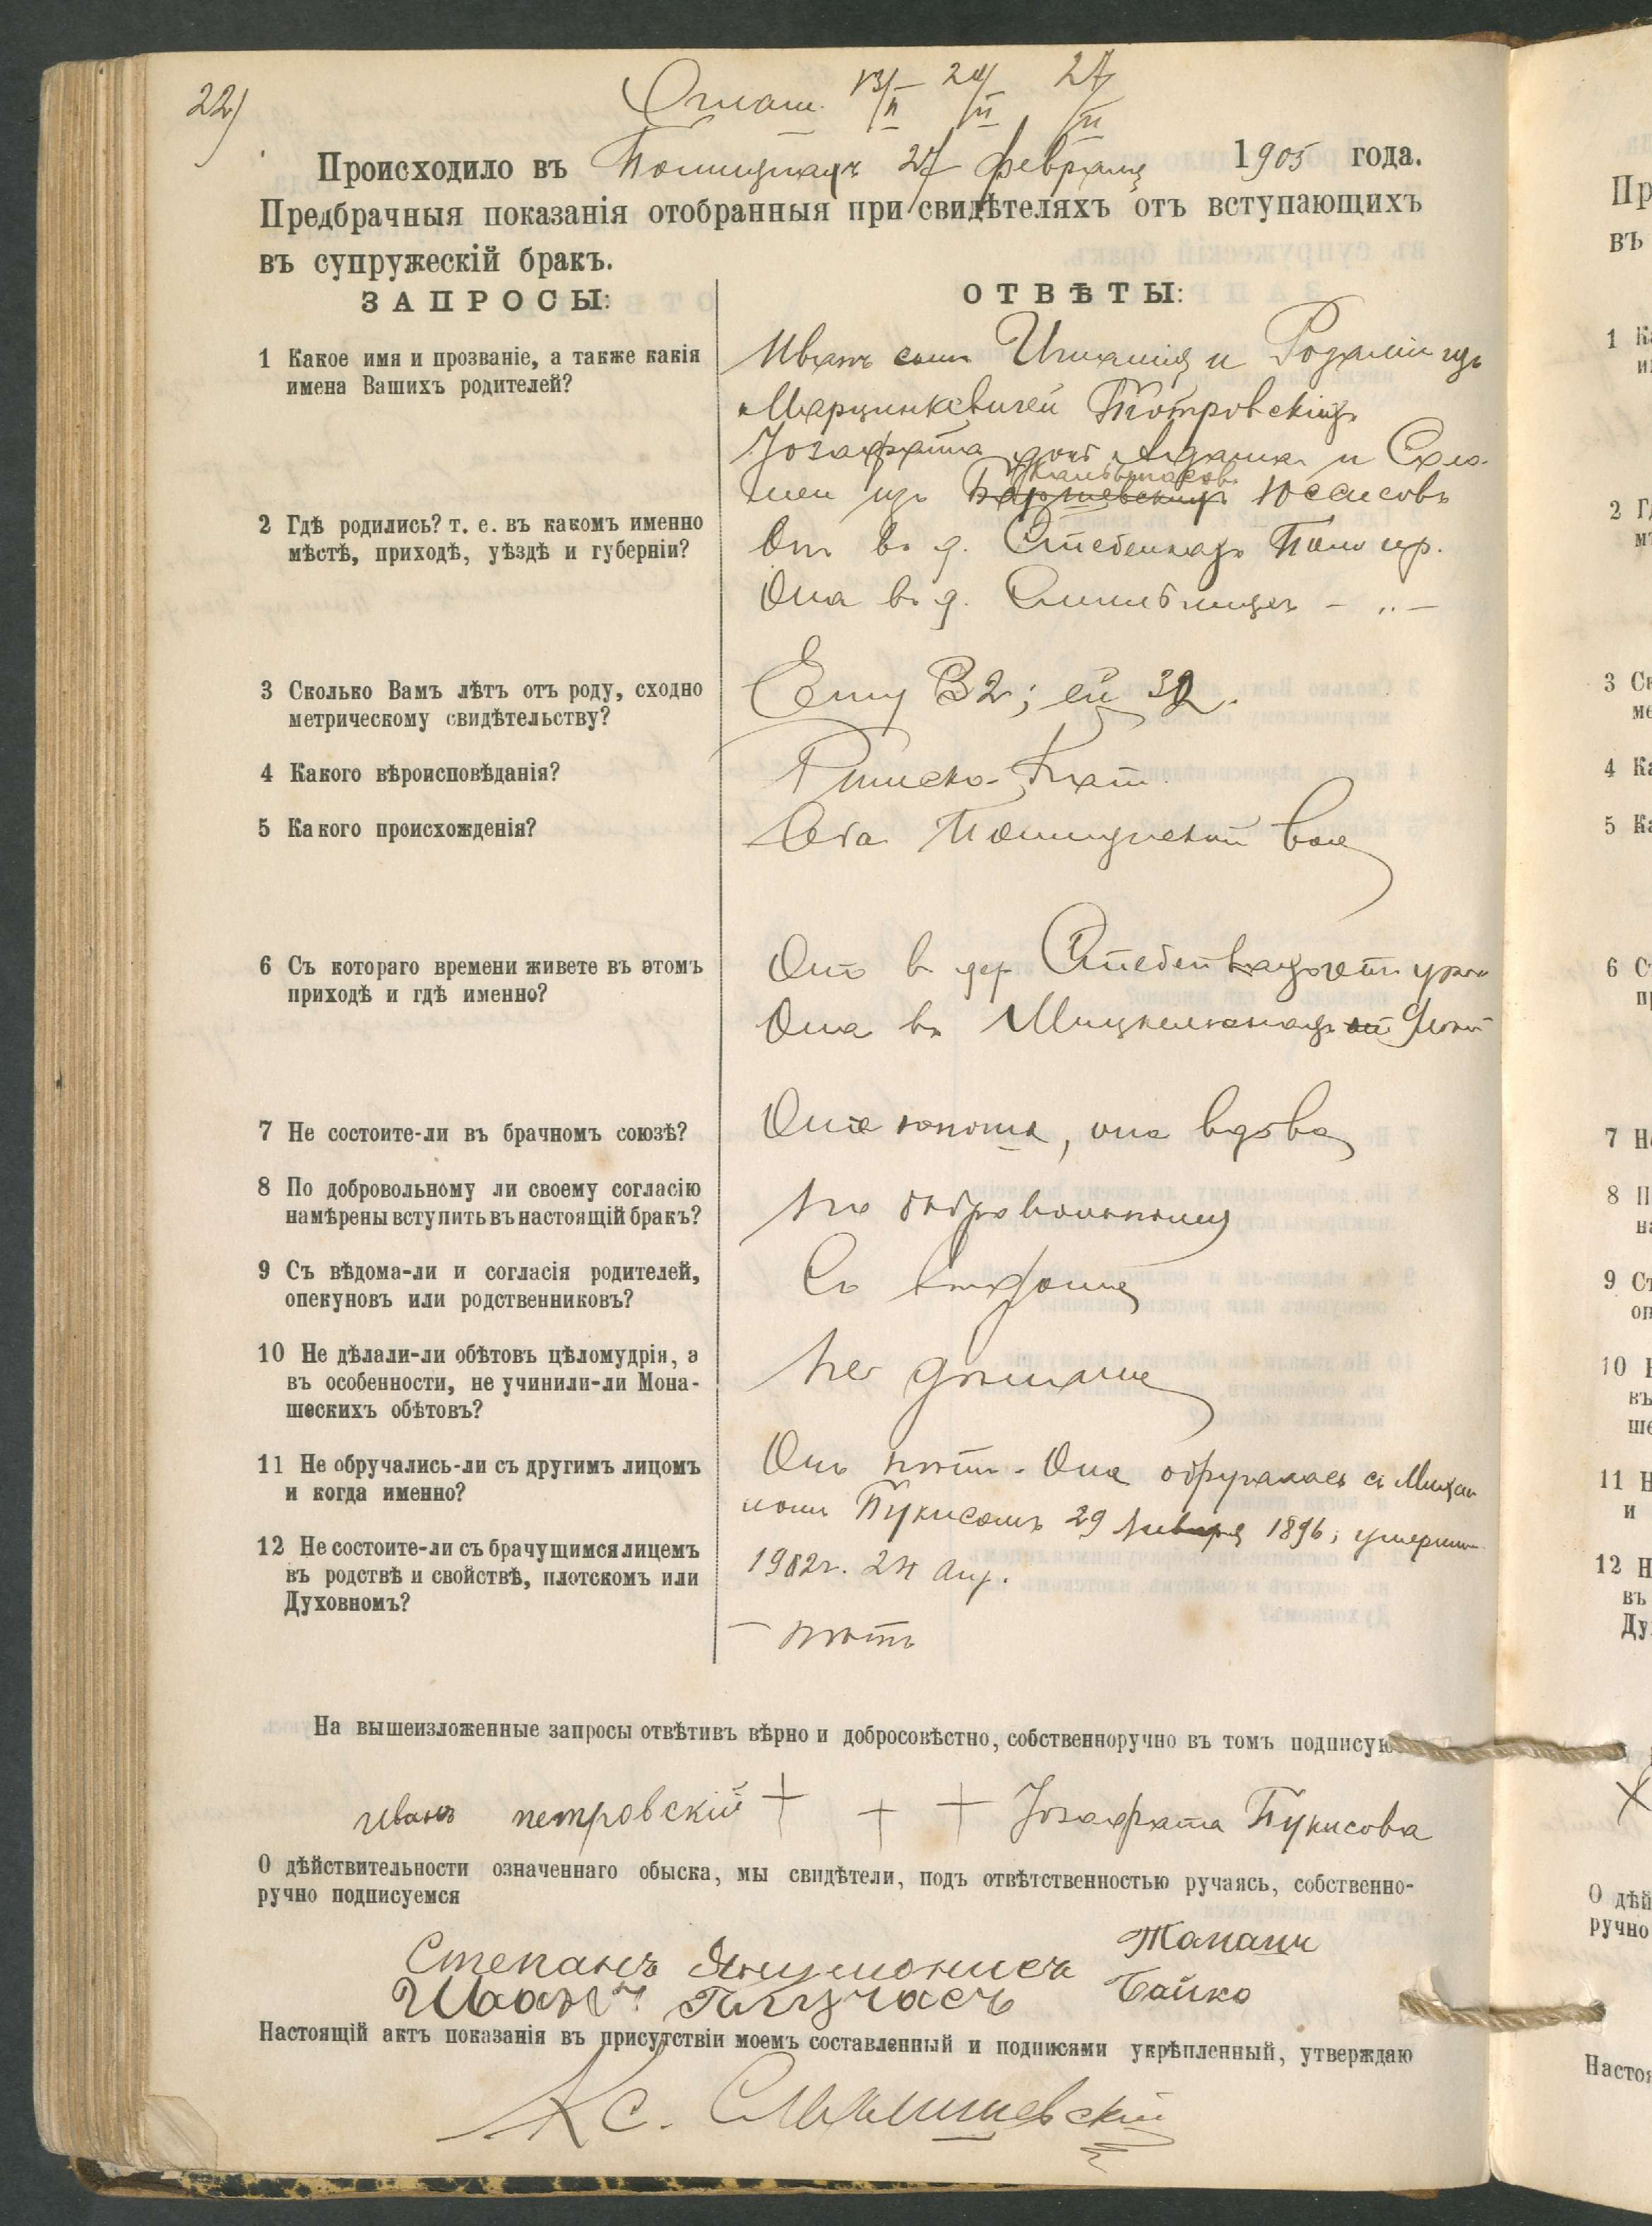 22)
Оглаш. 13/II 20/II 27/II
Происходило въ 27 февраля 1905 года.
Предбрачныя показанія отобранныя при свидѣтеляхъ отъ вступающихъ
въ супружескій бракъ.
ЗАПРОСЫ:
ОТВѢТЫ:
1 Какое имя и прозваніе, а также какія
имена Вашихъ родителей?
Иванъ сынъ Игнатія и Розаліи изъ
Марцинкевичей Петровскихъ
Іозафата дочь Адама и Сало-
меи изъ Юсасовъ
2 Гдѣ родились? т. е. въ какомъ именно
мѣстѣ, приходѣ, уѣздѣ и губерніи?
Онъ въ д. пр.
Она въ д. — „ —
3 Сколько Вамъ лѣтъ отъ роду, сходно
метрическому свидѣтельству?
Ему 32; ей 32.
4 Какого вѣроисповѣданія?
Римско-Кат.
5 Какого происхожденія?
Оба вол
6 Съ котораго времени живете въ этомъ
приходѣ и гдѣ именно?
Онъ въ дер.
Она въ
7 Не состоите-ли въ брачномъ союзѣ?
Онъ юноша, она вдова
8 По добровольному ли своему согласію
намѣрены вступить въ настоящій бракъ?
По добровольному
9 Съ вѣдома-ли и согласія родителей,
опекуновъ или родственниковъ?
Съ вѣдома
10 Не дѣлали-ли обѣтовъ цѣломудрія, а
въ особенности, не учинили-ли Мона-
шескихъ обѣтовъ?
Не дѣлали
11 Не обручались-ли съ другимъ лицомъ
и когда именно?
Онъ нѣтъ. Она обручалась съ Миха-
ломъ Пукисомъ 29 Января 1896; умершим
1902 г. 24 Апр.
12 Не состоите-ли съ брачущимся лицемъ
въ родствѣ и свойствѣ, плотскомъ или
Духовномъ?
— нѣтъ
На вышеизложенные запросы отвѣтивъ вѣрно и добросовѣстно, собственноручно въ томъ подписую
иванъ петровскій + + + Іозафата Пукисова
О дѣйствительности означеннаго обыска, мы свидѣтели, подъ отвѣтственностью ручаясь, собственно-
ручно подписуемся
Степанъ
Иванъ Байко
Настоящій актъ показанія въ присутствіи моемъ составленный и подписями укрѣпленный, утверждаю
Кс.